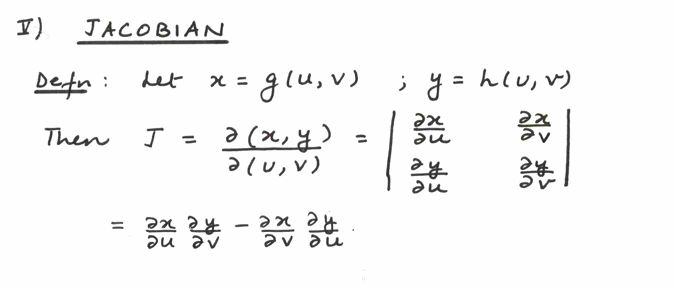 V) JACOBIAN
Defn : Let x = g(u, v) ; y = h(u, v)
Then J = ∂(x, y)/∂(u, v) = | ∂x/∂u ∂x/∂v |
| ∂y/∂u ∂y/∂v |
= ∂x/∂u ∂y/∂v - ∂x/∂v ∂y/∂u .